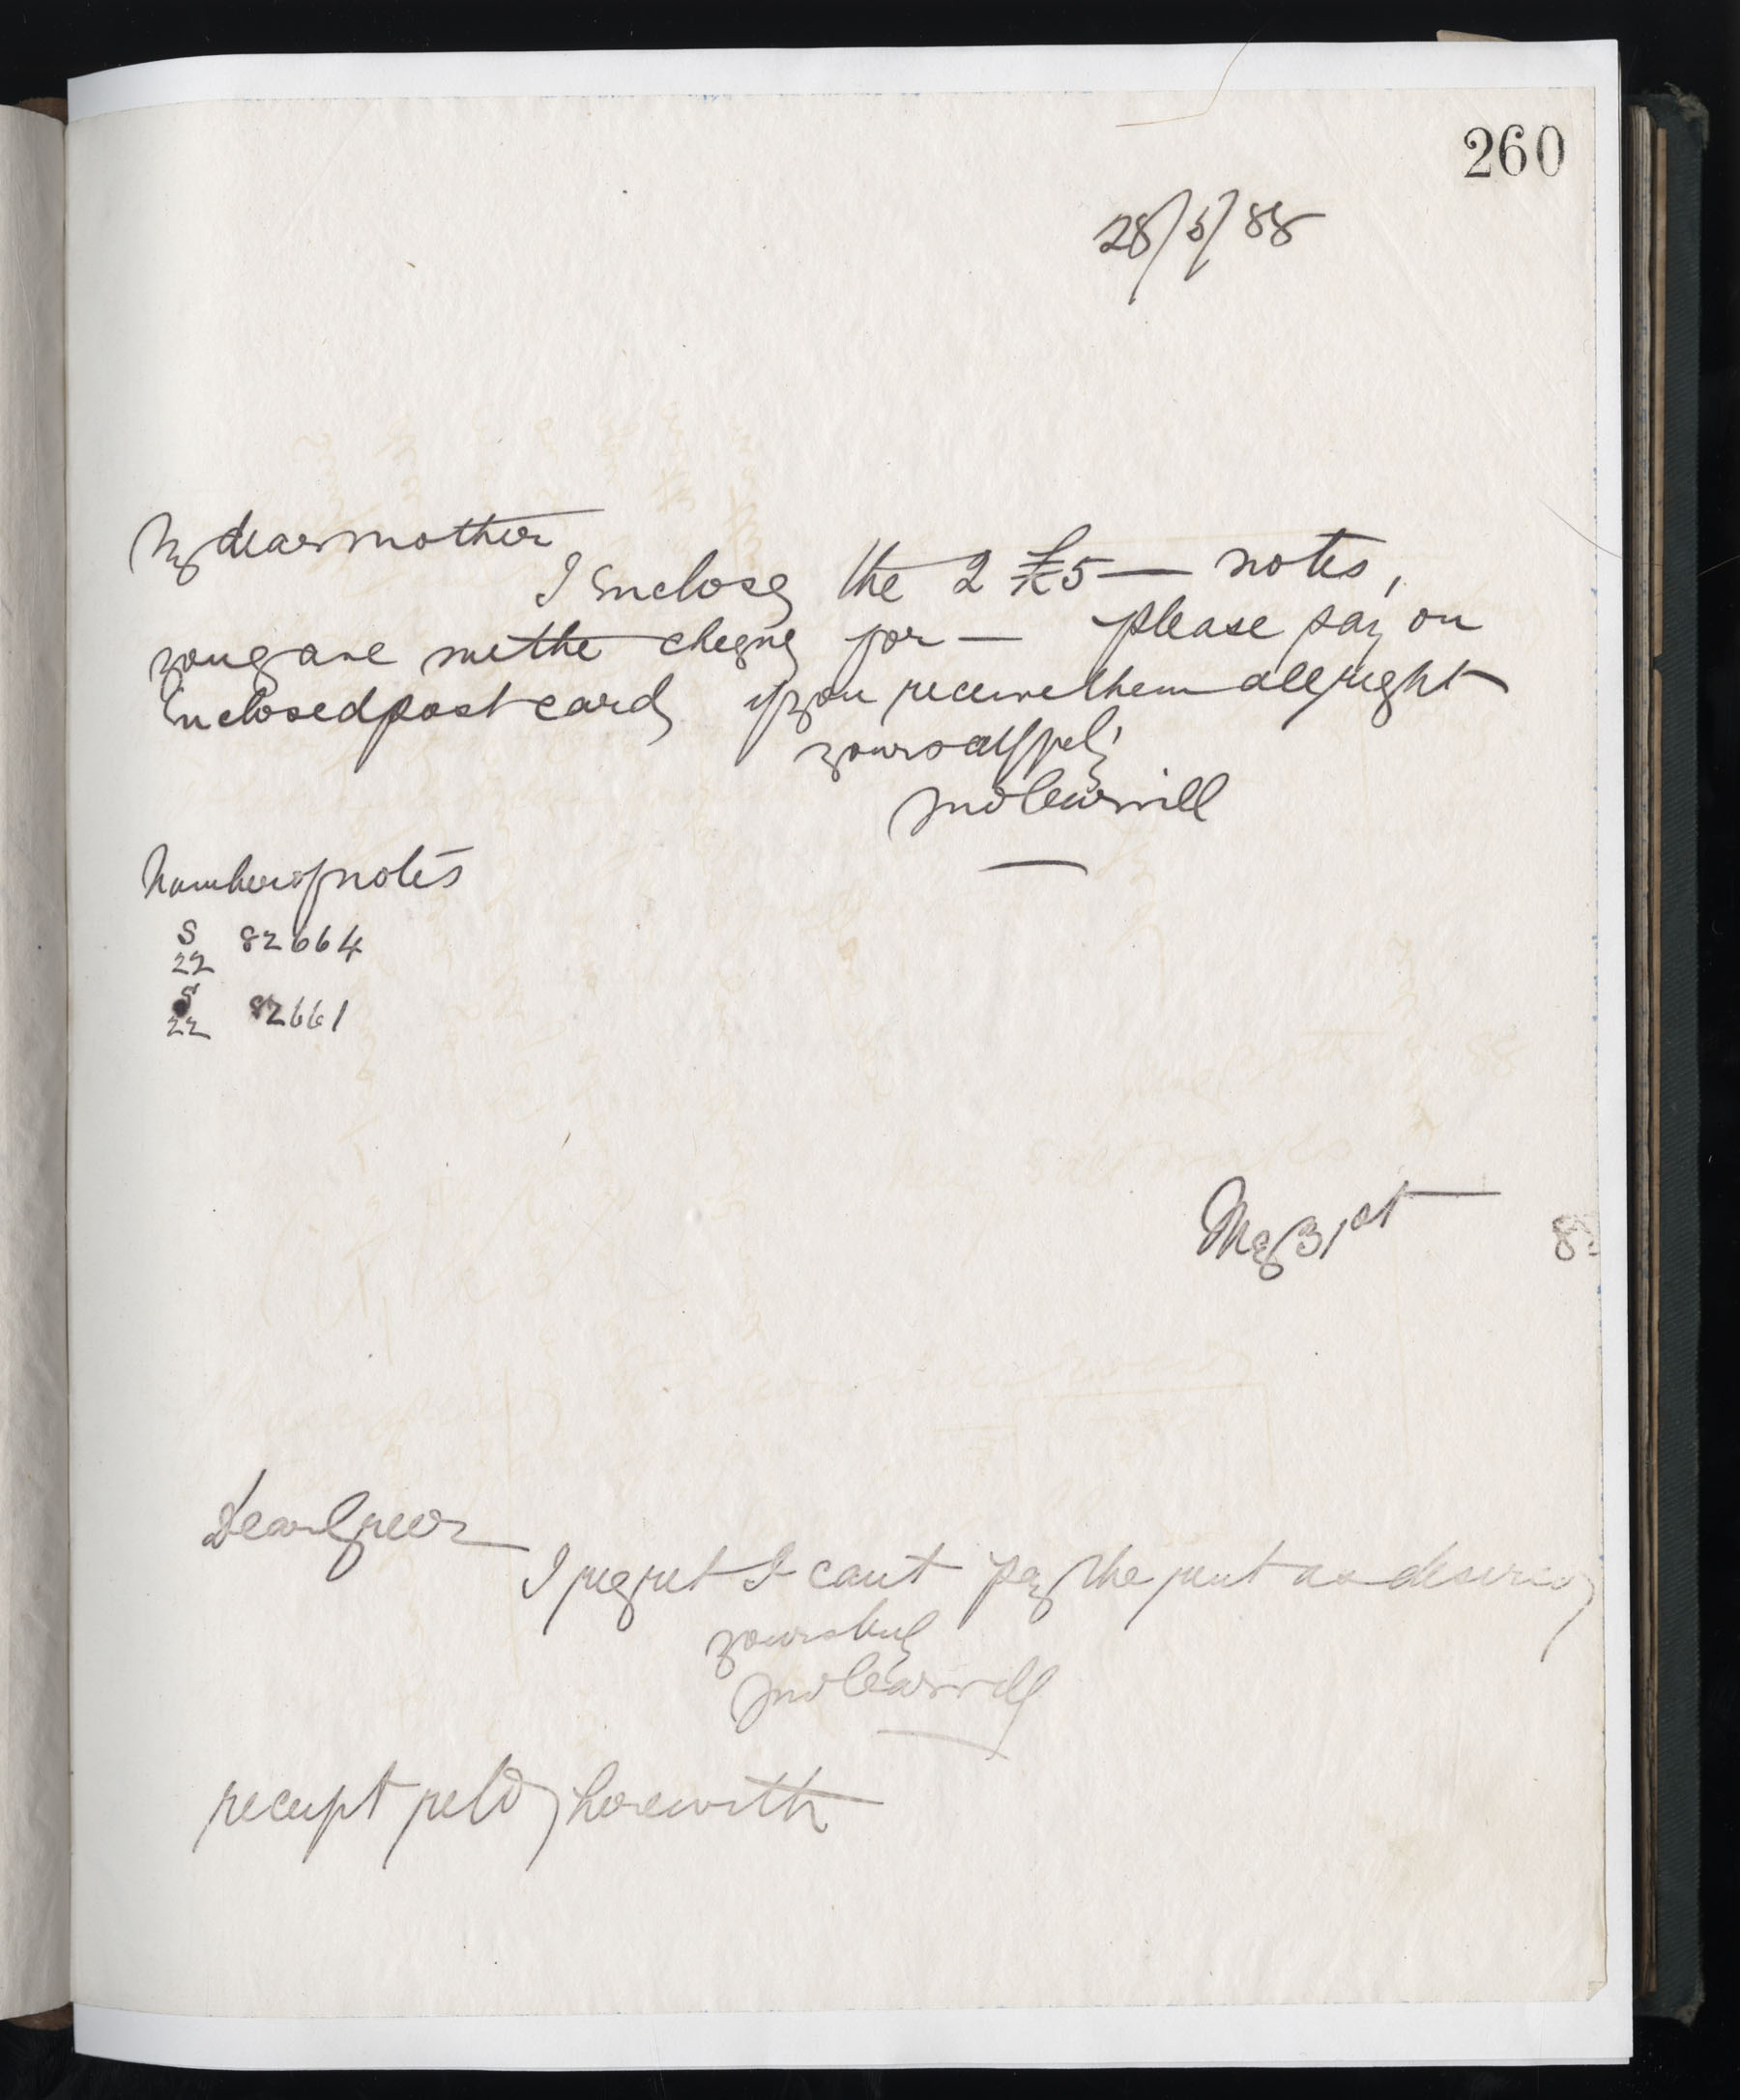 260
28/5/88
My dear mother
I Enclose the 2 £5— notes,
you gave me the cheque for — please say on
Enclosed post card if you receive them all right
yours affely
Jno Cearnill
Number of notes
S 82664
22
S 82661
22
My 31st 8
Dear Greer
I regret I cant pay the rent as desired
yours truly
Jno Cearnill
receipt retd herewith